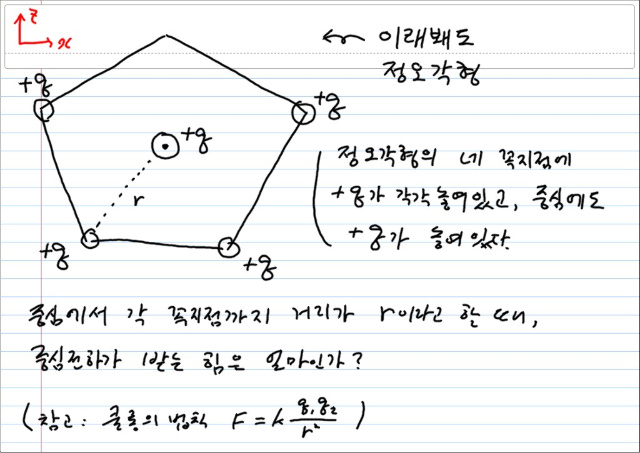 z
x
← 이래봬도
정오각형
+q
+q
+q
정오각형의 네 꼭지점에
+q가 각각 놓여있고, 중심에도
+q가 놓여있다.
r
+q
+q
중심에서 각 꼭지점까지 거리가 r이라고 할 때,
중심전하가 받는 힘은 얼마인가?
(참고: 쿨롱의 법칙 F = k q₁q₂/r²)